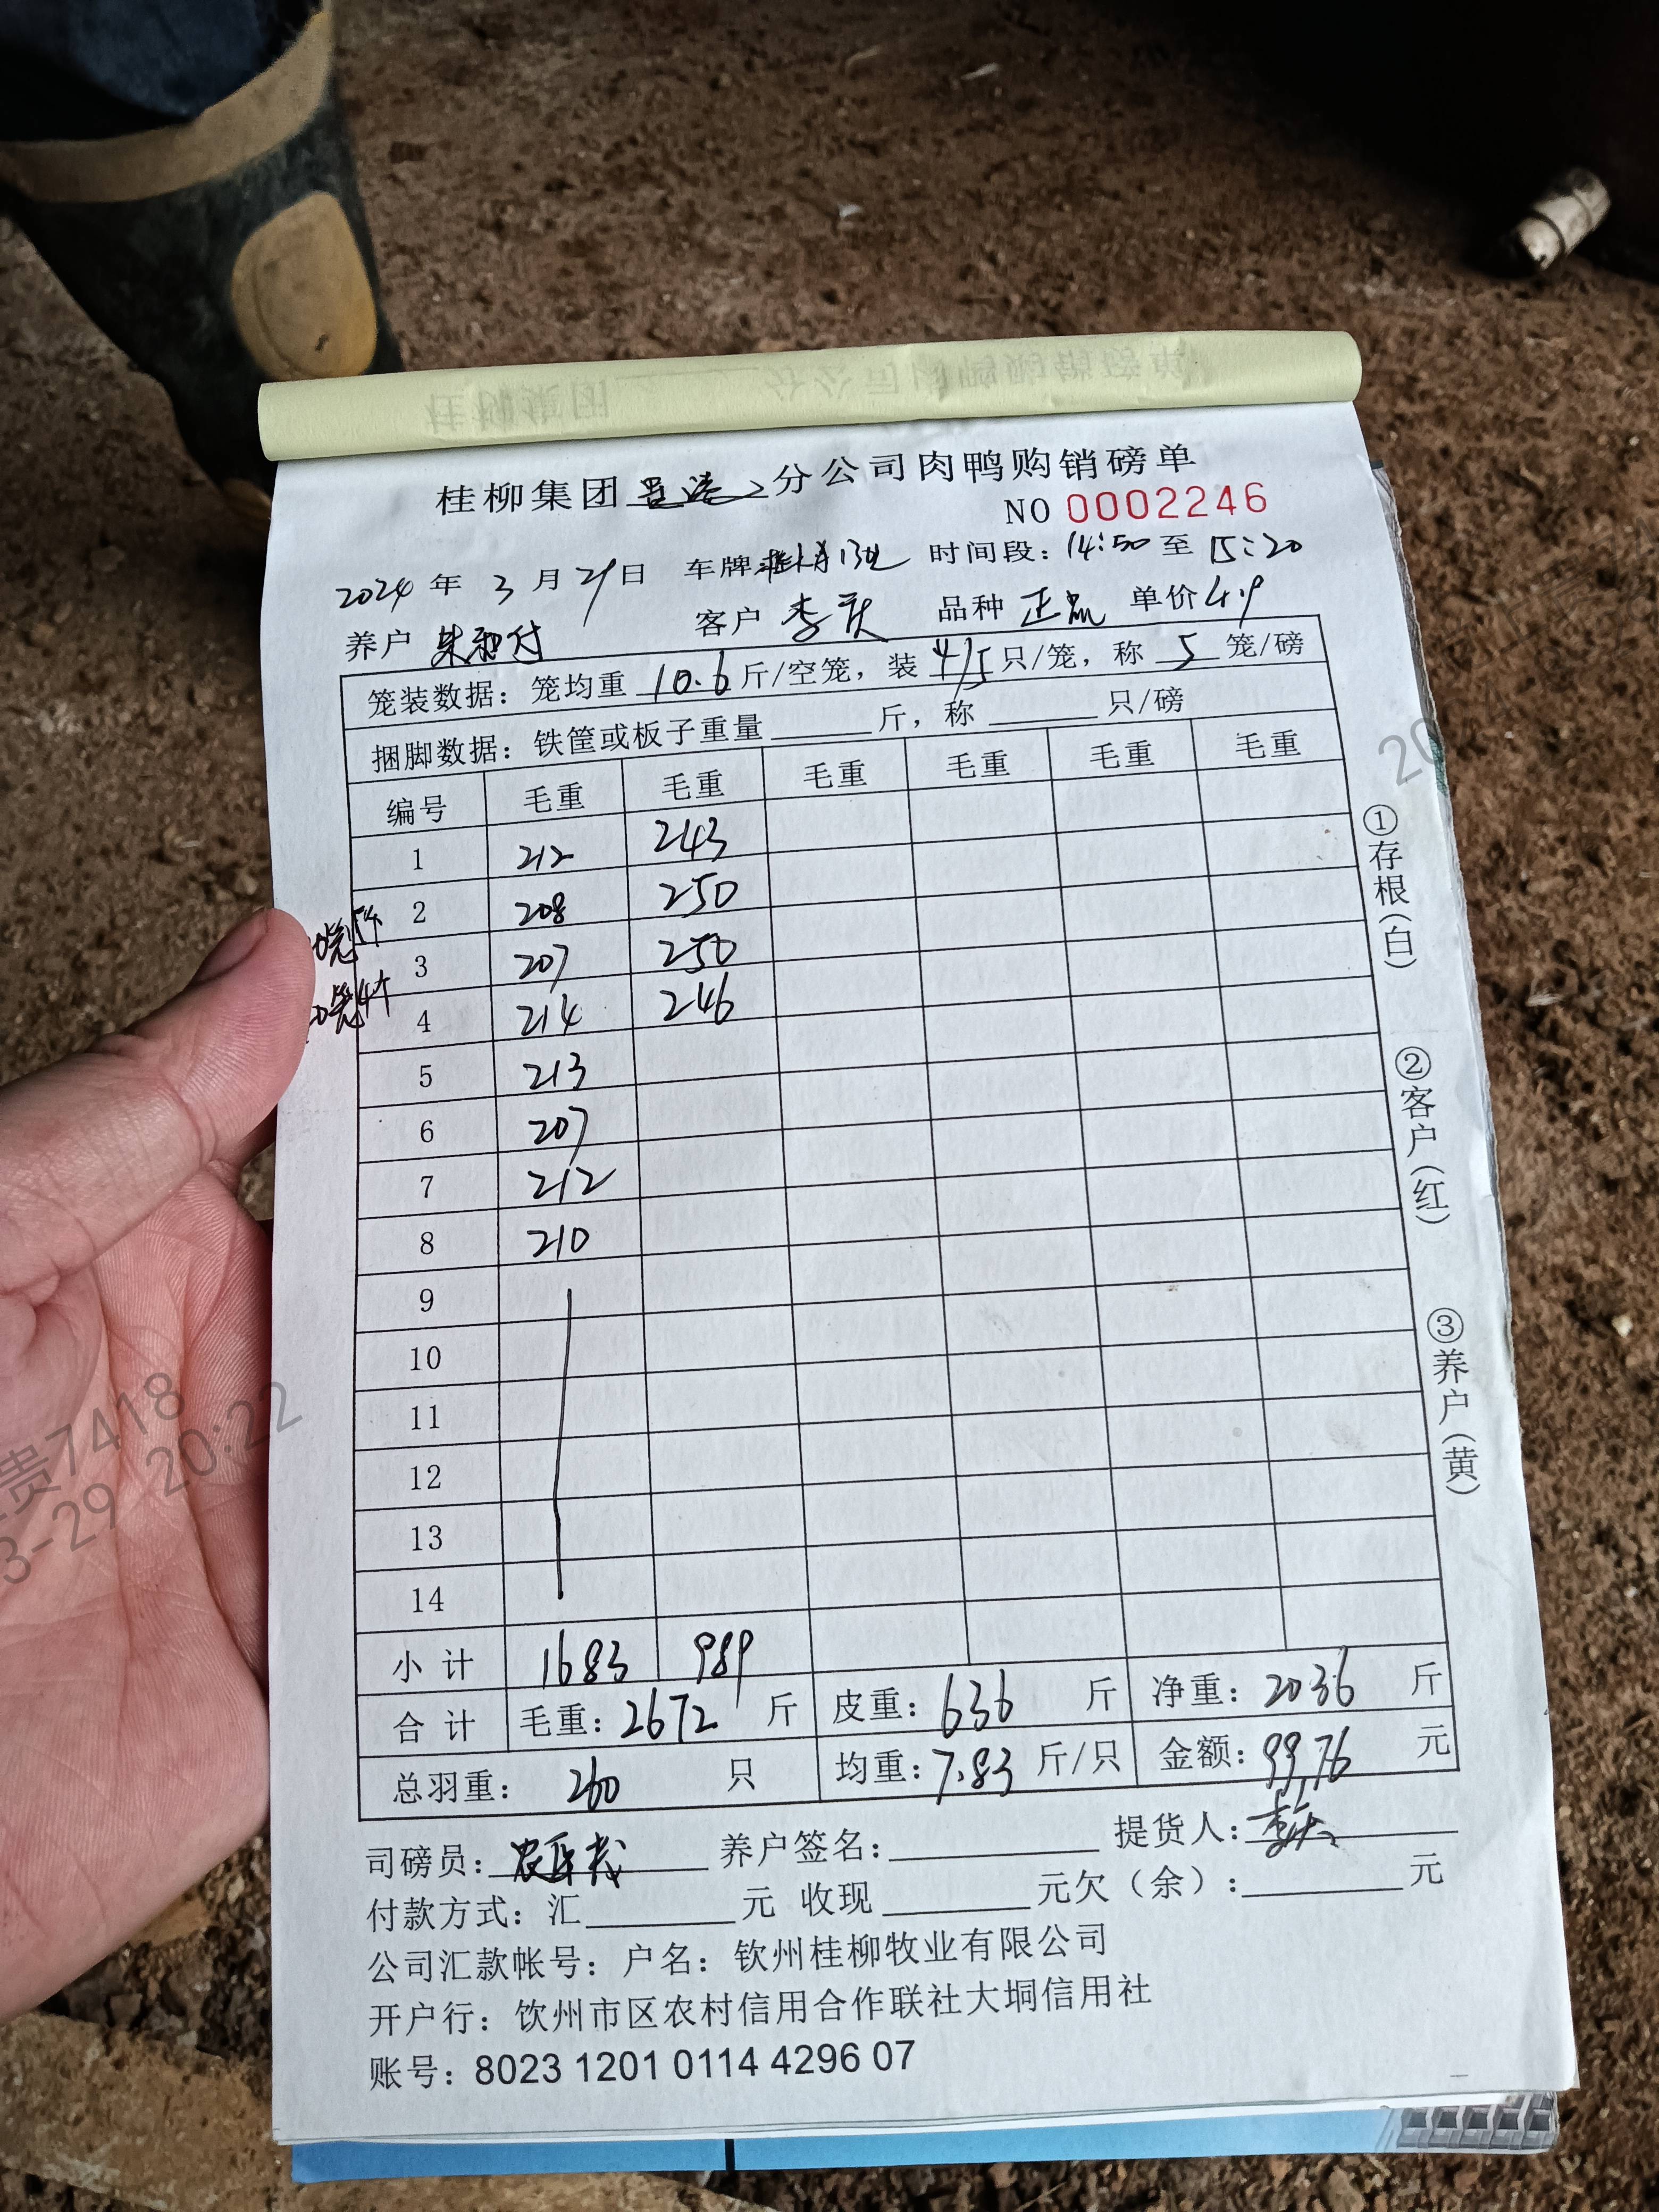 桂柳集团 分公司肉鸭购销磅单
NO 0002246
2024 年 3 月 29 日 车牌 时间段：14:50 至 15:20
养户 朱 付 客户 李庆 品种 正 单价 4.9
笼装数据：笼均重 10.6 斤/空笼，装 4/5 只/笼，称 5 笼/磅
捆脚数据：铁筐或板子重量 斤，称 只/磅
编号 毛重 毛重 毛重 毛重 毛重 毛重
1 212 243
2 208 250
3 207 250
4 214 246
5 213
6 207
7 212
8 210
9
10
11
12
13
14
小计 1683 989
合计 毛重：2672 斤 皮重：636 斤 净重：2036 斤
总羽重： 260 只 均重：7.83 斤/只 金额：9976 元
司磅员： 养户签名： 提货人：李庆
付款方式：汇 元 收现 元欠（余）： 元
公司汇款帐号：户名：钦州桂柳牧业有限公司
开户行：钦州市区农村信用合作联社大垌信用社
账号：8023 1201 0114 4296 07
①存根(白)
②客户(红)
③养户(黄)
0笼5个
20笼4个
贵7418
3-29 20:22
20